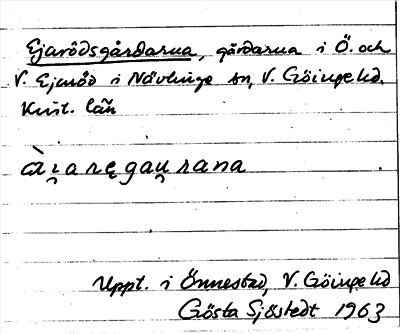 Ejarödsgårdarna, gårdarna i Ö. och
V. Ejaröd i Nävlinge sn, V. Göinge hd.
Krist. län
ài̯aręgau̯rana
Uppt. i Önnestad, V. Göinge hd
Gösta Sjöstedt 1963